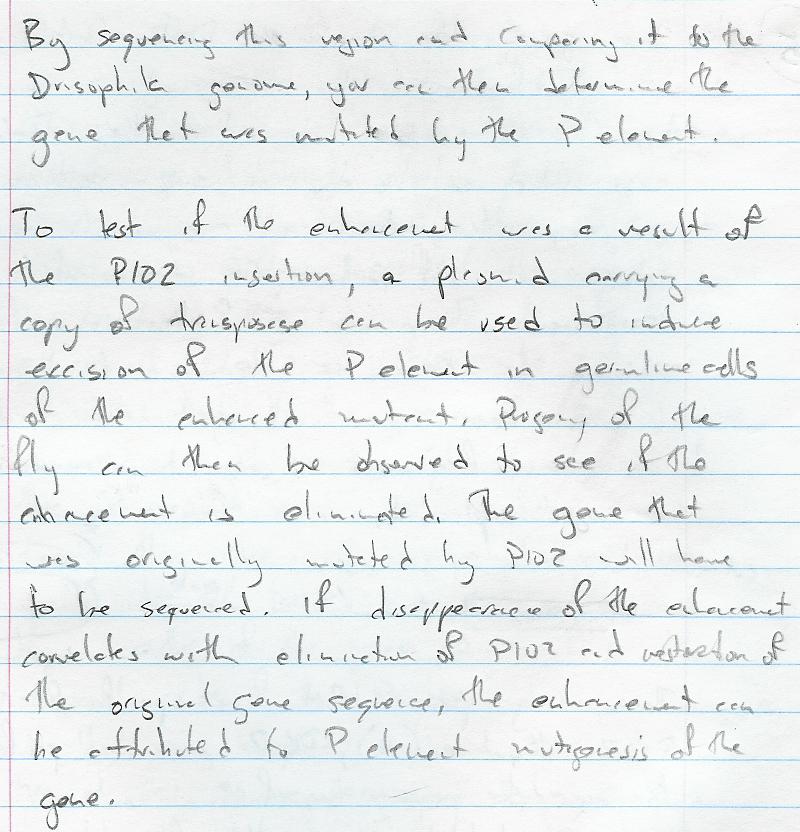 By sequencing this region and comparing it to the
Drisophila genome, you can then determine the
gene that was mutated by the P element.
To test if the enhancement was a result of
the P102 insertion, a plasmid carrying a
copy of transposase can be used to induce
excision of the P element in germline cells
of the enhanced mutant. Progeny of the
fly can then be observed to see if the
enhancement is eliminated. The gene that
was originally mutated by P102 will have
to be sequenced. If disappearance of the enhancement
correlates with elimination of P102 and restoration of
the original gene sequence, the enhancement can
be attributed to P element mutagenesis of the
gene.